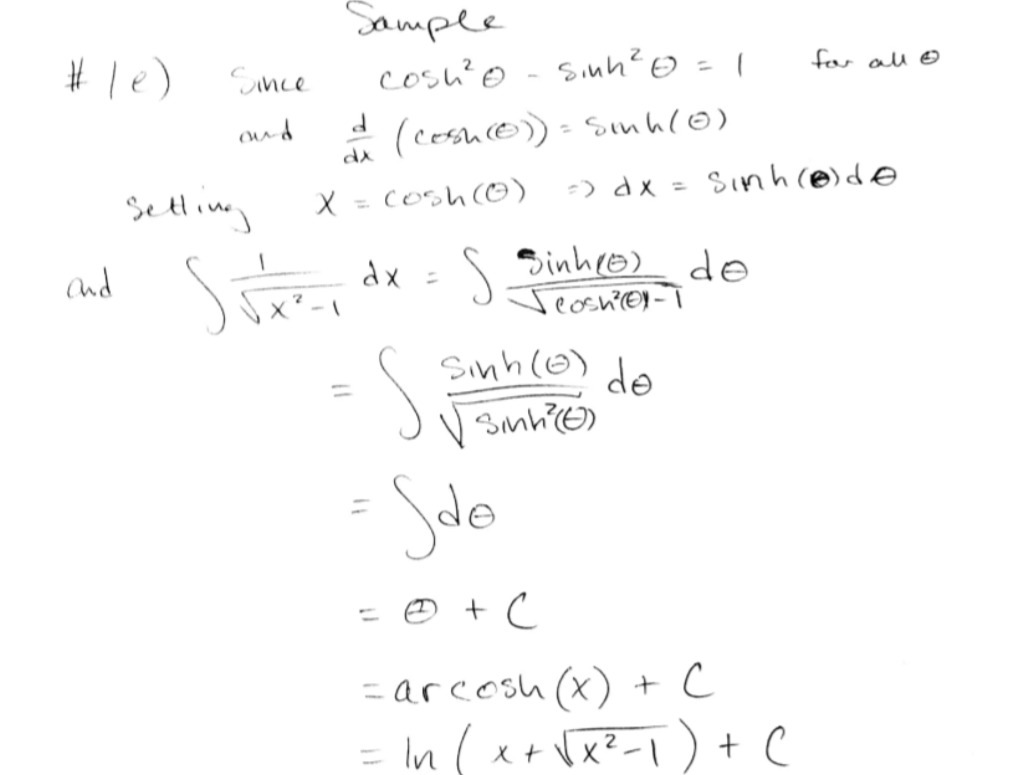 Sample
# 1e) Since cosh²θ - sinh²θ = 1 for all θ
and d/dx (cosh(θ)) = sinh(θ)
Setting x = cosh(θ) => dx = sinh(θ)dθ
and ∫ 1/√(x²-1) dx = ∫ sinh(θ)/√(cosh²(θ)-1) dθ
= ∫ sinh(θ)/√(sinh²(θ)) dθ
= ∫dθ
= θ + C
= arcosh(x) + C
= ln(x+√(x²-1)) + C